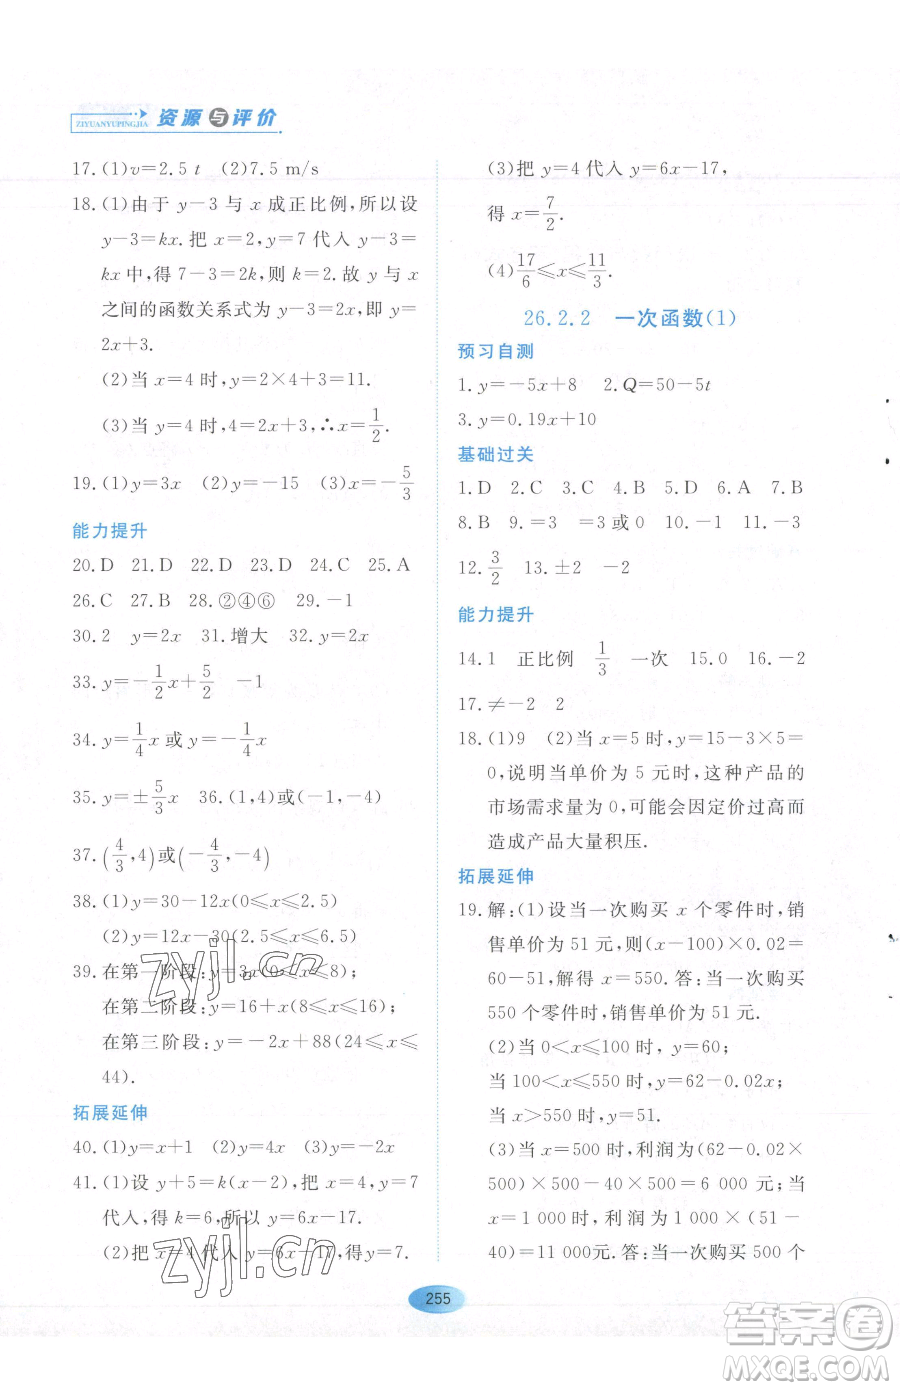 资源与评价
ZIYUANYUPINGJIA
17.(1)v=2.5t (2)7.5 m/s
18.(1)由于 y-3 与 x 成正比例,所以设
y-3=kx.把 x=2,y=7 代入 y-3=
kx 中,得 7-3=2k,则 k=2.故 y 与 x
之间的函数关系式为 y-3=2x,即 y=
2x+3.
(2)当 x=4 时,y=2×4+3=11.
(3)当 y=4 时,4=2x+3,∴x=1/2.
19.(1)y=3x (2)y=-15 (3)x=-5/3
能力提升
20.D 21.D 22.D 23.D 24.C 25.A
26.C 27.B 28.②④⑥ 29.-1
30.2 y=2x 31.增大 32.y=2x
33.y=-1/2x+5/2 -1
34.y=1/4x 或 y=-1/4x
35.y=±5/3x 36.(1,4)或(-1,-4)
37.(4/3,4)或(-4/3,-4)
38.(1)y=30-12x(0≤x≤2.5)
(2)y=12x-30(2.5≤x≤6.5)
39.在第一阶段:y=3x(0≤x≤8);
在第二阶段:y=16+x(8≤x≤16);
在第三阶段:y=-2x+88(24≤x≤
44).
拓展延伸
40.(1)y=x+1 (2)y=4x (3)y=-2x
41.(1)设 y+5=k(x-2),把 x=4,y=7
代入,得 k=6,所以 y=6x-17.
(2)把 x=4 代入 y=6x-17,得 y=7.
(3)把 y=4 代入 y=6x-17,
得 x=7/2.
(4)17/6≤x≤11/3.
26.2.2 一次函数(1)
预习自测
1.y=-5x+8 2.Q=50-5t
3.y=0.19x+10
基础过关
1.D 2.C 3.C 4.B 5.D 6.A 7.B
8.B 9.=3 =3或0 10.-1 11.-3
12.3/2 13.±2 -2
能力提升
14.1 正比例 1/3 一次 15.0 16.-2
17.≠-2 2
18.(1)9 (2)当 x=5 时,y=15-3×5=
0,说明当单价为 5 元时,这种产品的
市场需求量为 0,可能会因定价过高而
造成产品大量积压.
拓展延伸
19.解:(1)设当一次购买 x 个零件时,销
售单价为 51 元,则(x-100)×0.02=
60-51,解得 x=550.答:当一次购买
550 个零件时,销售单价为 51 元.
(2)当 0<x≤100 时,y=60;
当 100<x≤550 时,y=62-0.02x;
当 x>550 时,y=51.
(3)当 x=500 时,利润为(62-0.02
×500)×500-40×500=6 000(元);
当 x=1 000 时,利润为1 000×(51-
40)=11 000元.答:当一次购买 500 个
255
zyjl.cn
zyjl.cn
答案圈
MXQE.COM